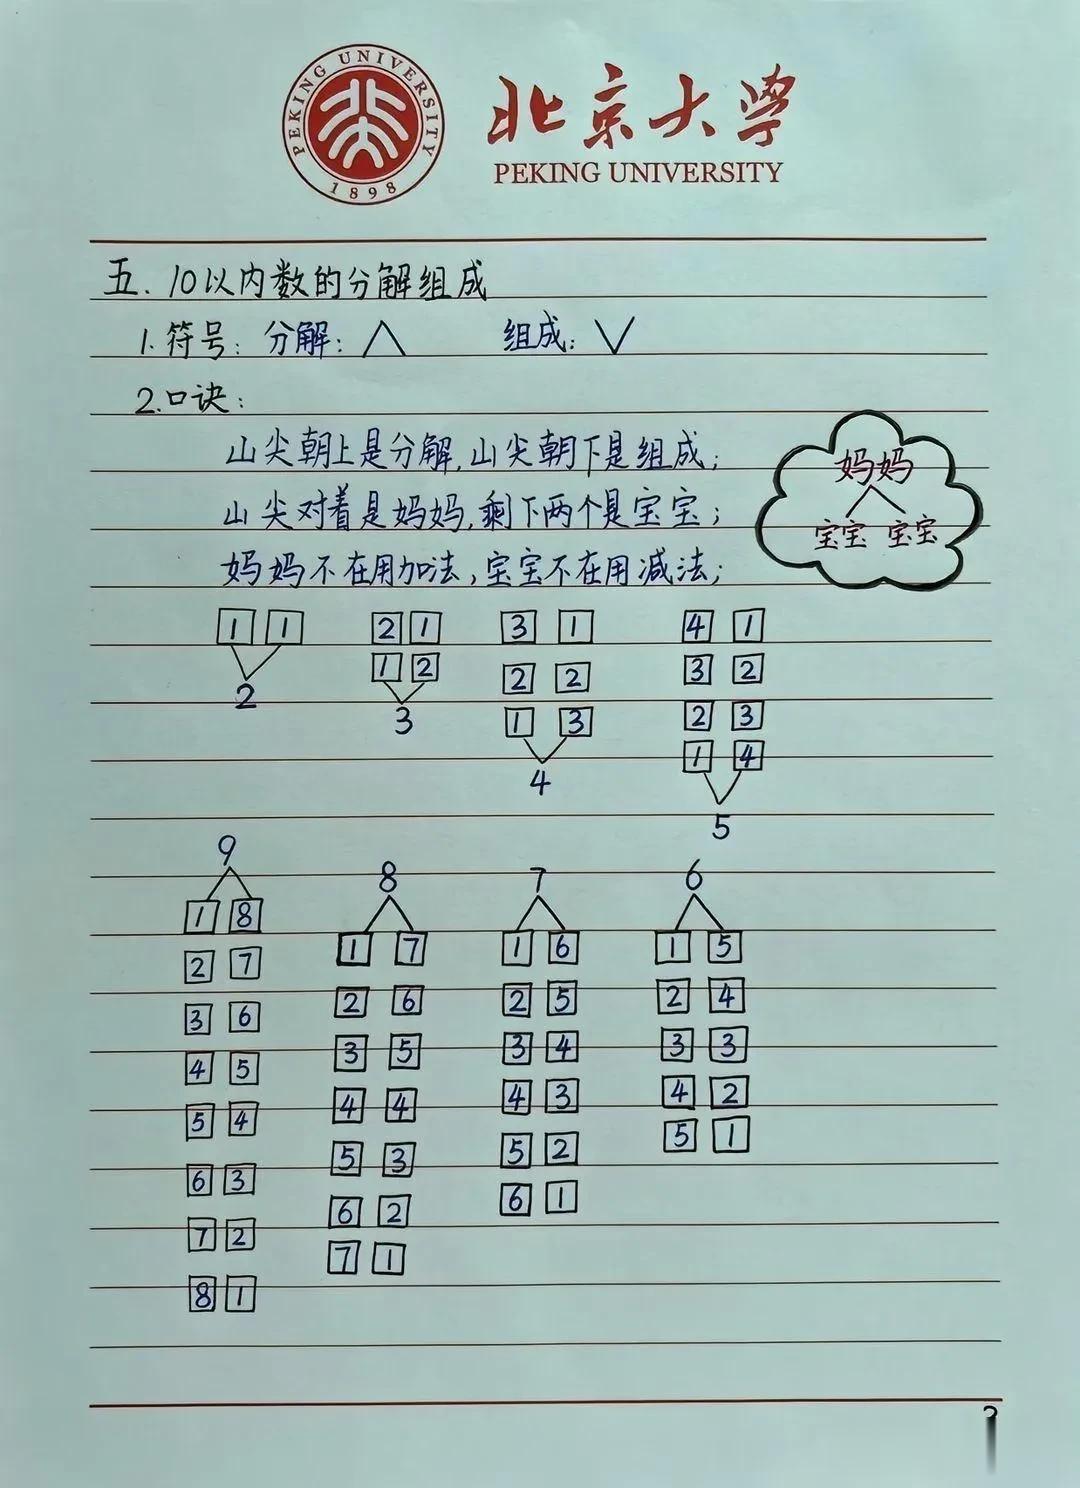 PEKING UNIVERSITY
1898
北京大学
PEKING UNIVERSITY
五.10以内数的分解组成
1.符号:分解:∧ 组成:∨
2.口诀:
山尖朝上是分解,山尖朝下是组成;
山尖对着是妈妈,剩下两个是宝宝;
妈妈不在用加法,宝宝不在用减法;
妈妈
宝宝 宝宝
1 1 2 1 3 1 4 1
1 2 2 2 3 2
2 3 1 3 2 3
1 4
4
5
9 8 7 6
1 8 1 7 1 6 1 5
2 7 2 6 2 5 2 4
3 6 3 5 3 4 3 3
4 5 4 4 4 3 4 2
5 4 5 3 5 2 5 1
6 3 6 2 6 1
7 2 7 1
8 1